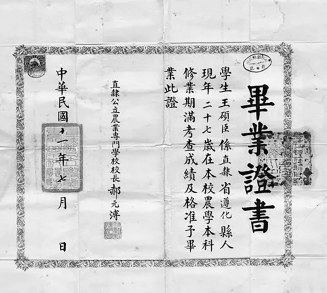 畢業證書
學生王碩臣係直隸省遵化縣人
現年二十七歲在本校農學本科
修業期滿考查成績及格准予畢
業此證
直隸公立農業專門學校校長郝元溥
中華民國十一年七月 日